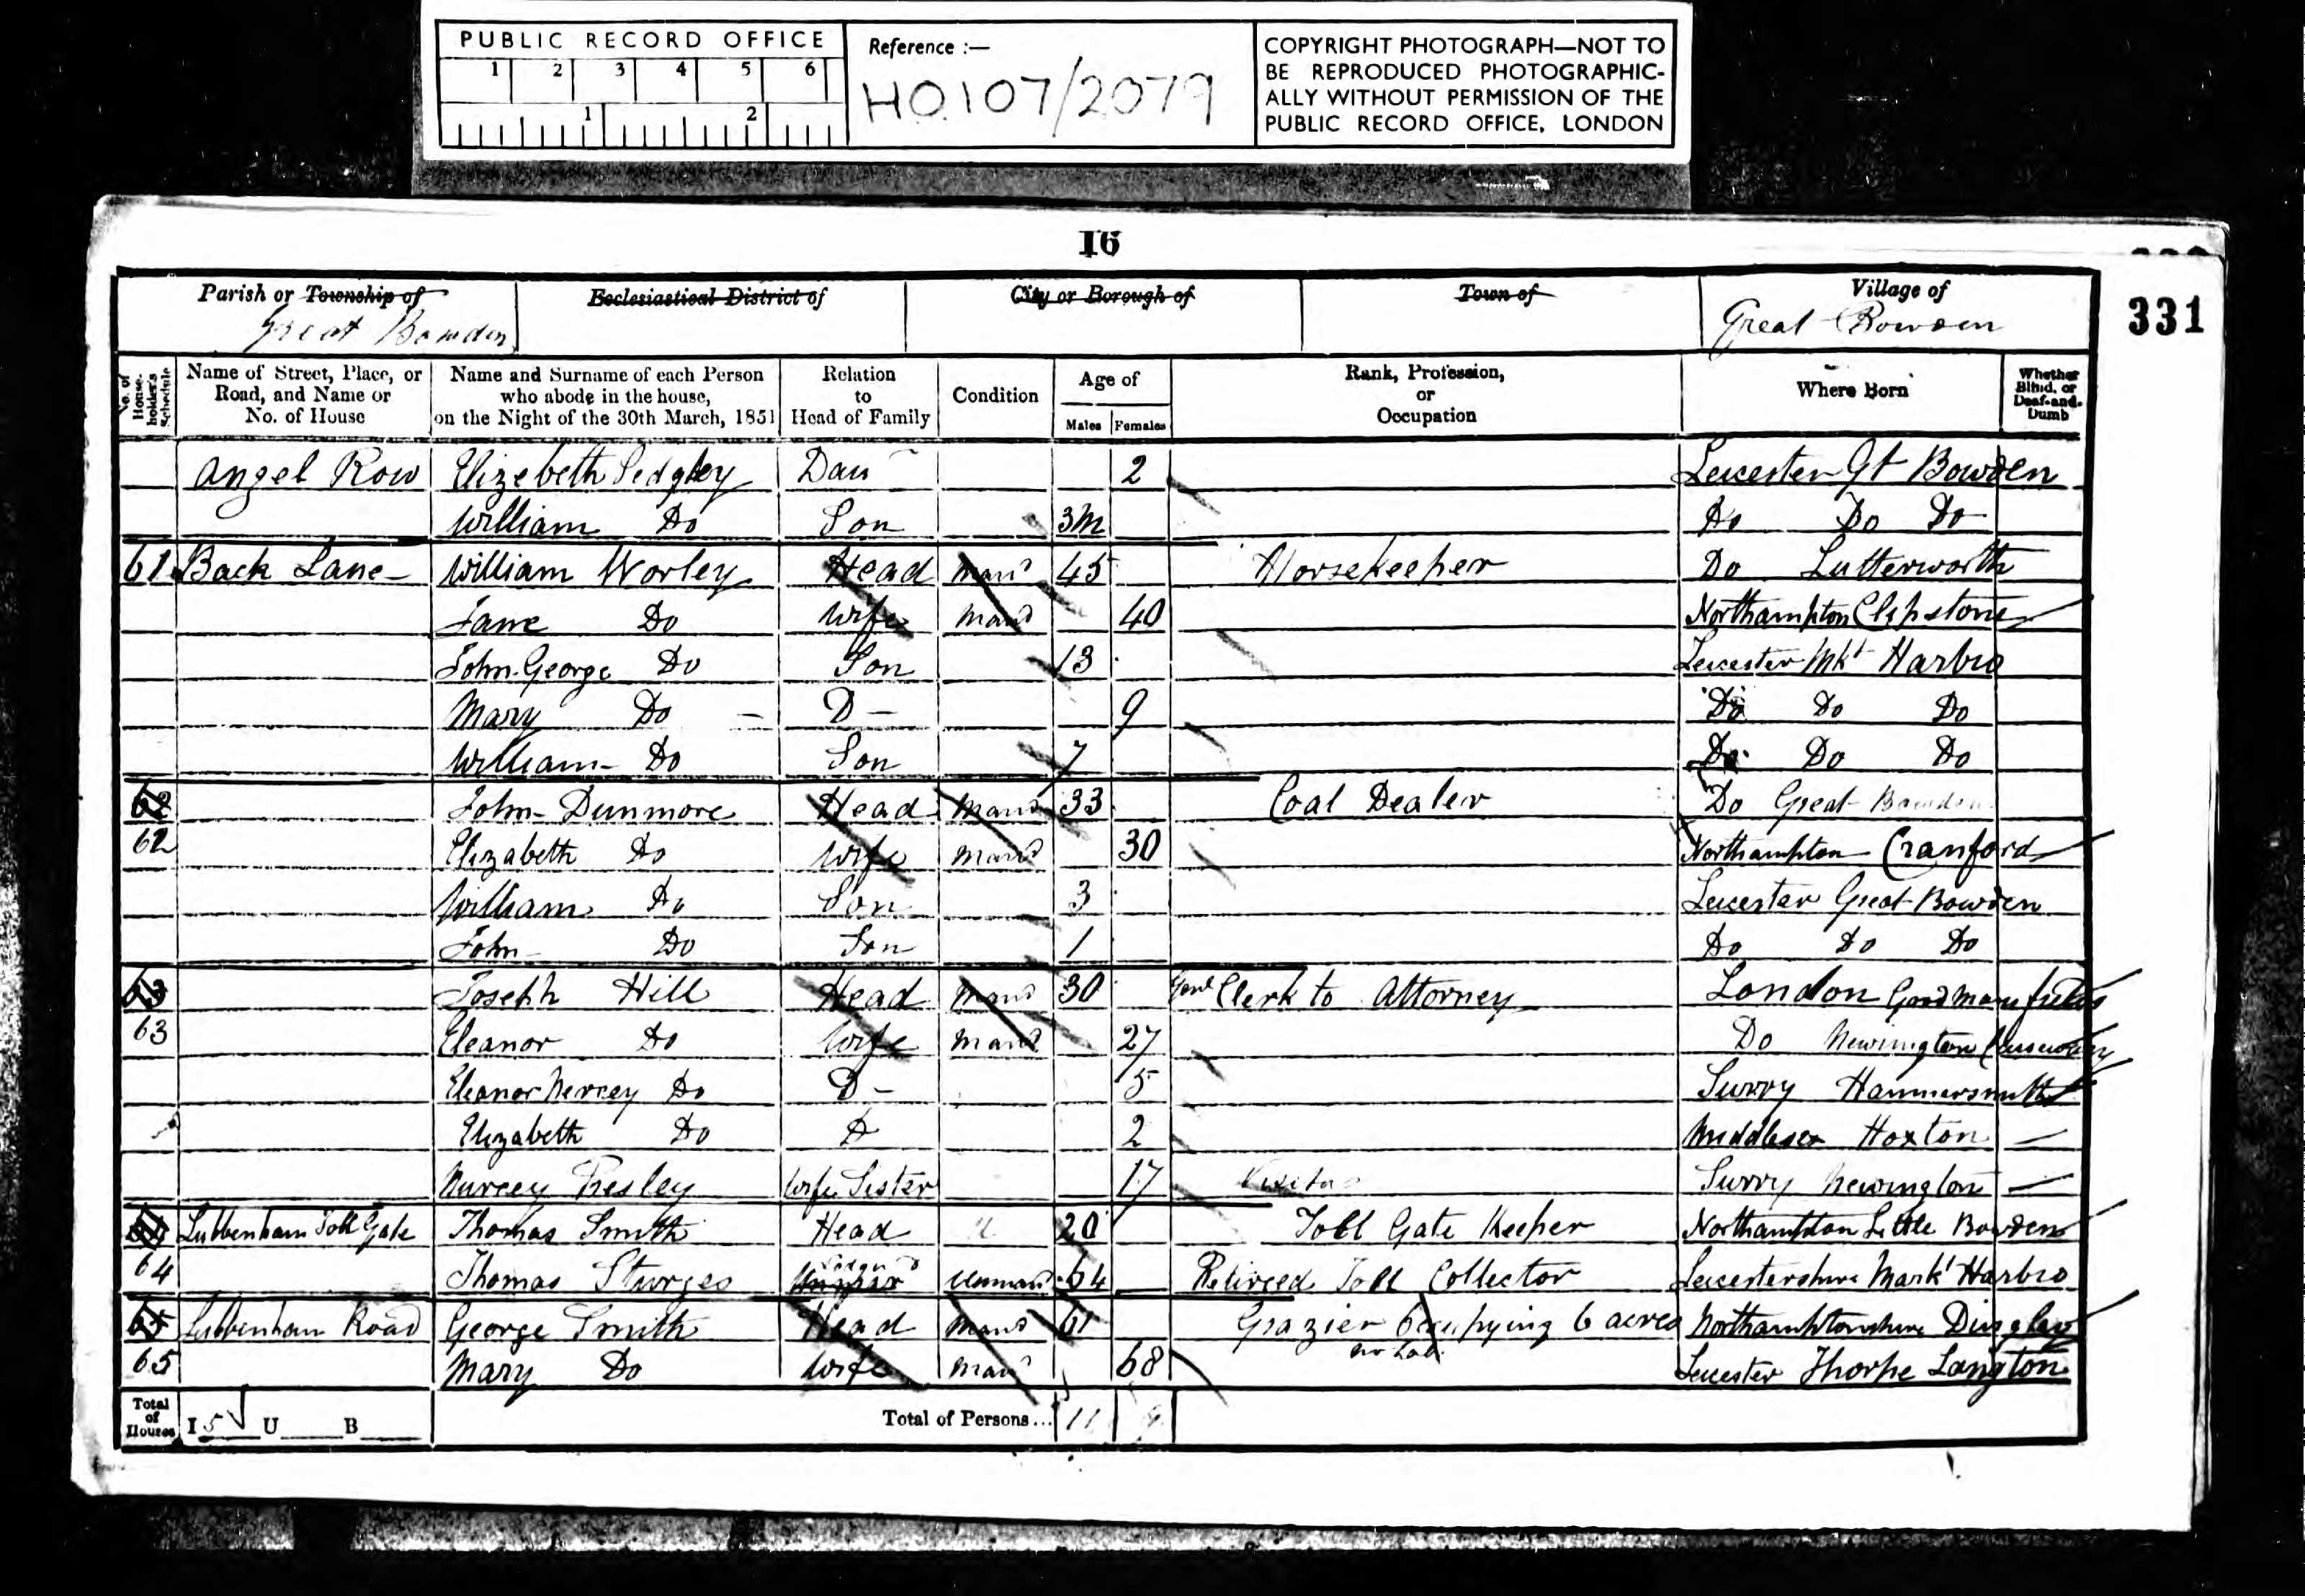 PUBLIC RECORD OFFICE
1 2 3 4 5 6
1 2
Reference :—
HO.107/2079
COPYRIGHT PHOTOGRAPH—NOT TO
BE REPRODUCED PHOTOGRAPHIC-
ALLY WITHOUT PERMISSION OF THE
PUBLIC RECORD OFFICE, LONDON
16
331
Parish or Township of Ecclesiastical District of City or Borough of Town of Village of
Great Bowden Great Bowden
No. of House-holder's Schedule
Name of Street, Place, or Road, and Name or No. of House
Name and Surname of each Person who abode in the house, on the Night of the 30th March, 1851
Relation to Head of Family
Condition
Age of
Males Females
Rank, Profession, or Occupation
Where Born
Whether Blind, or Deaf-and-Dumb
Angel Row Elizebeth Sedgley Dau 2 Leicester Gt Bowden
William Do Son 3m Do Do Do
61 Back Lane William Worley Head Mard 45 Horsekeeper Do Lutterworth
Jane Do Wife Mard 40 Northampton Clipstone
John George Do Son 13 Leicester Mkt Harbro
Mary Do D 9 Do Do Do
William Do Son 7 Do Do Do
62 John Dunmore Head Mard 33 Coal Dealer Do Great Bowden
62 Elizabeth Do Wife Mard 30 Northampton Cranford
William Do Son 3 Leicester Great Bowden
John Do Son 1 Do Do Do
63 Joseph Hill Head Mard 30 Genl Clerk to Attorney London Goodmans fields
63 Eleanor Do Wife Mard 27 Do Newington Causeway
Eleanor Nercey Do D 5 Surry Hammersmith
Elizabeth Do D 2 Middlesex Hoxton
Nurcey Presley Wife Sister 17 Visitor Surry Newington
64 Lubbenham Toll Gate Thomas Smith Head U 20 Toll Gate Keeper Northampton Little Bowden
64 Thomas Sturges Unmard 64 Retirced Toll Collector Leicestershire Markt Harbro
65 Lubbenham Road George Smith Head Mard 61 Grazier Occupying 6 acres Northamptonshire Dingley
no Lab
65 Mary Do Wife Mard 68 Leicester Thorpe Langton
Total of Houses I 5 U B Total of Persons... 11 9